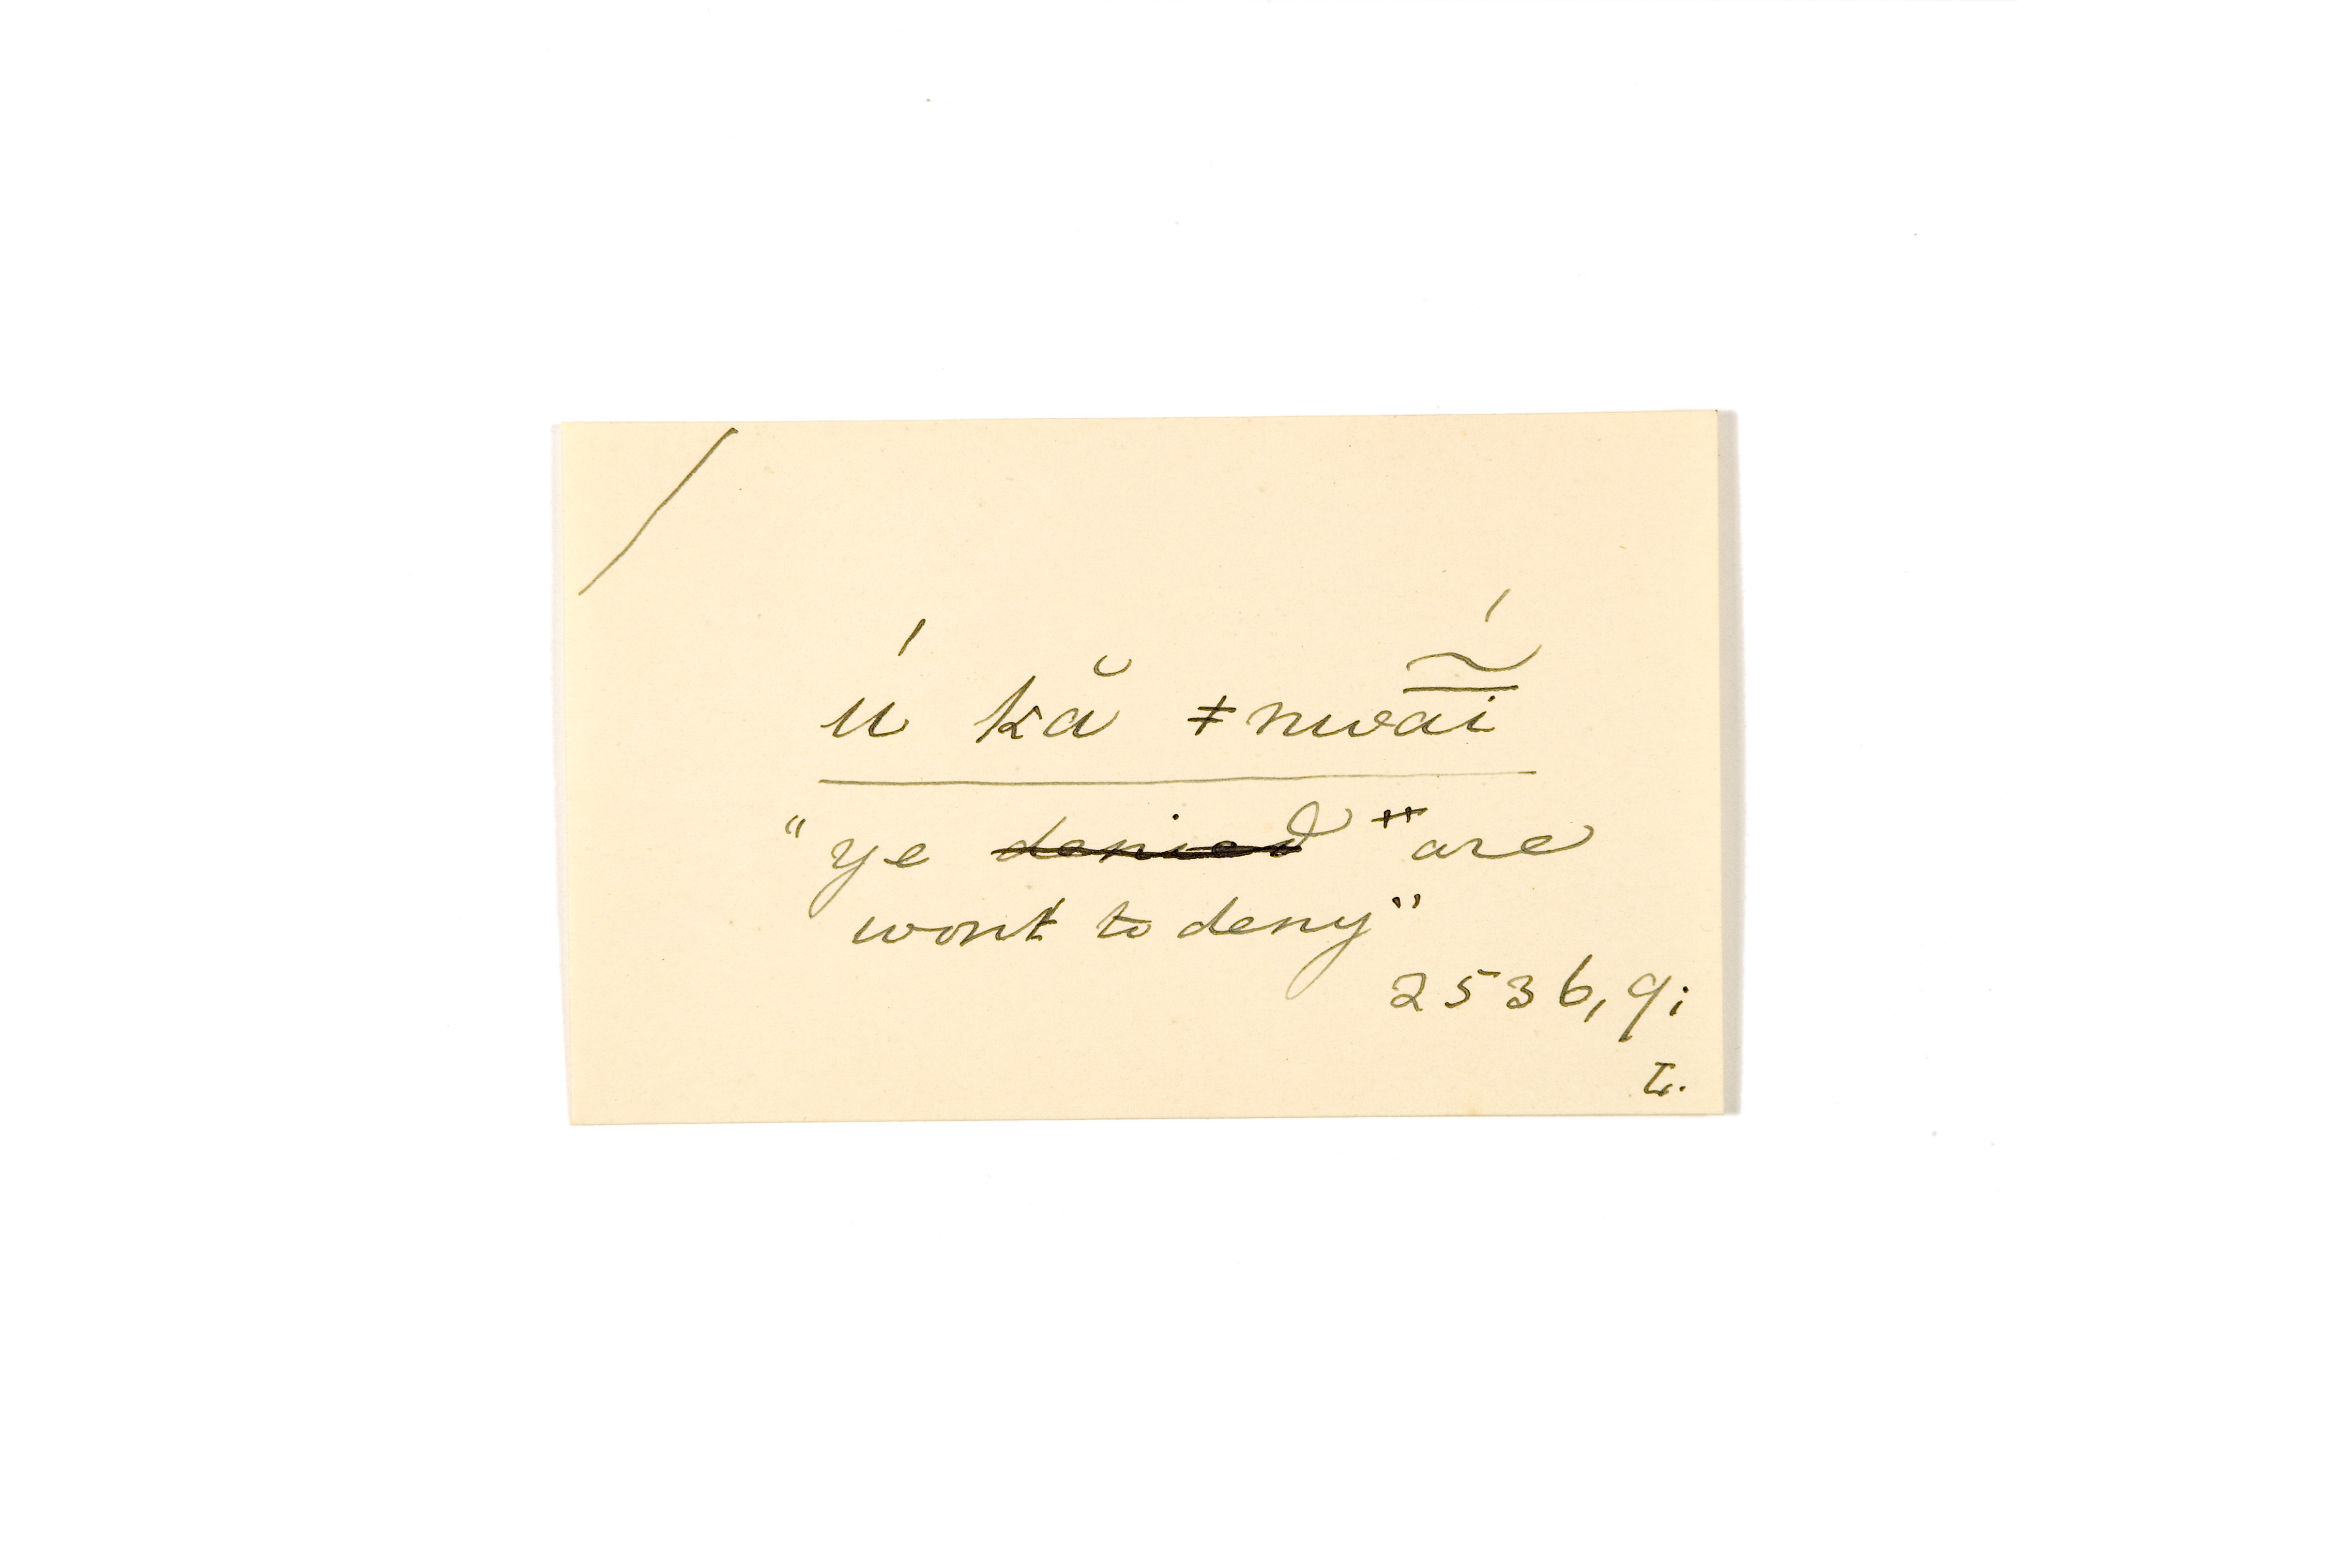 ú kă ǂnwa͠í
"ye ~~denied~~ ~~"~~ are
wont to deny"
2536, 9;
L.